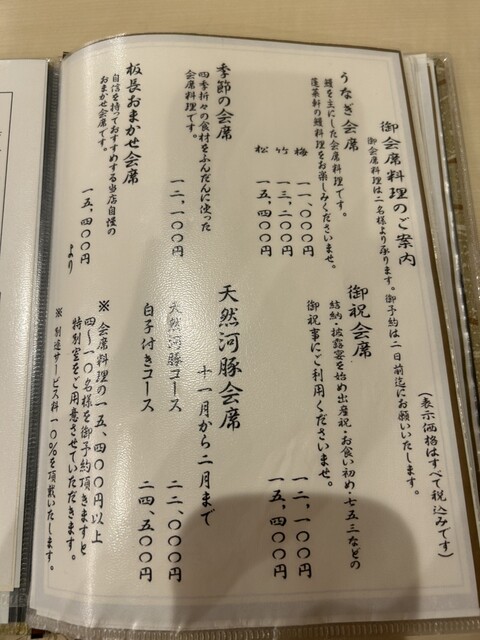 御会席料理のご案内
（表示価格はすべて税込みです）
御会席料理は二名様より承ります。御予約は二日前迄にお願いいたします。
うなぎ会席
鰻を主にした会席料理です。
蓬莱軒の鰻料理をお楽しみくださいませ。
梅 一一、〇〇〇円
竹 一三、二〇〇円
松 一五、四〇〇円
季節の会席
四季折々の食材をふんだんに使った
会席料理です。
一二、一〇〇円
板長おまかせ会席
自信を持っておすすめする当店自慢の
おまかせ会席です。
一五、四〇〇円
より
御祝会席
結納・披露宴を始め出産祝・お食い初め・七五三などの
御祝事にご利用くださいませ。
一二、一〇〇円
一五、四〇〇円
天然河豚会席
十一月から二月まで
天然河豚コース 二二、〇〇〇円
白子付きコース 二四、五〇〇円
※ 会席料理の一五、四〇〇円以上
四〜一〇名様を御予約頂きますと
特別室をご用意させていただきます。
※ 別途サービス料一〇％を頂戴いたします。